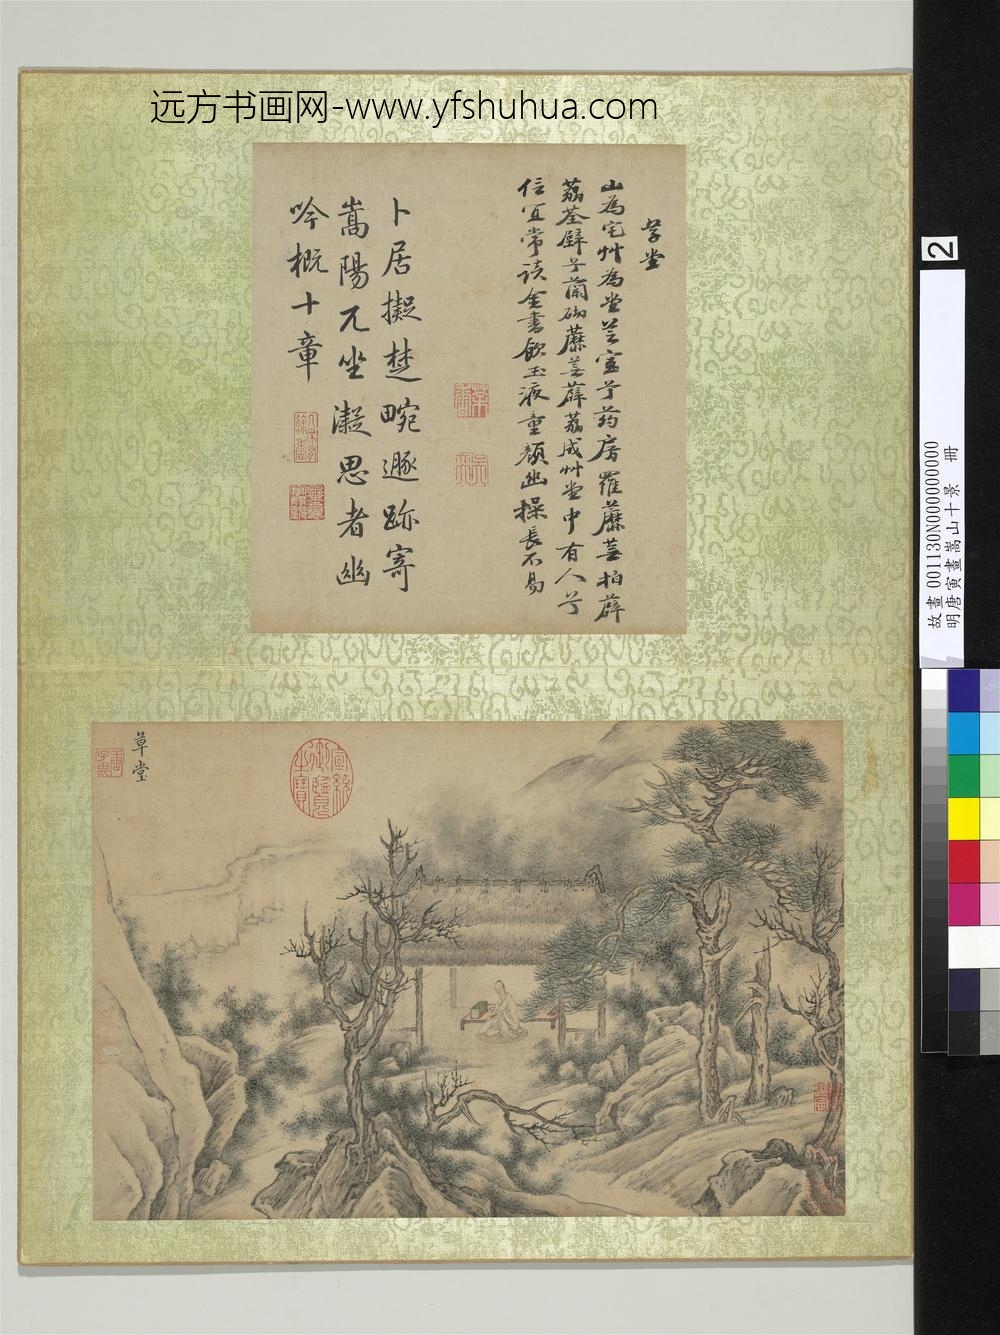 远方书画网-www.yfshuhua.com
草堂
山為宅艸為堂芝室兮药房羅蘪蕪拍薜
荔荃壁兮蘭砌蘪蕪薜荔成艸堂中有人兮
信宜常讀金書飲玉液童顏幽操長不易
卜居擬楚畹遯跡寄
嵩陽兀坐凝思者幽
吟概十章
草堂
宣統御覽之寶
2
故畫 001130N000000000
明唐寅畫嵩山十景 冊